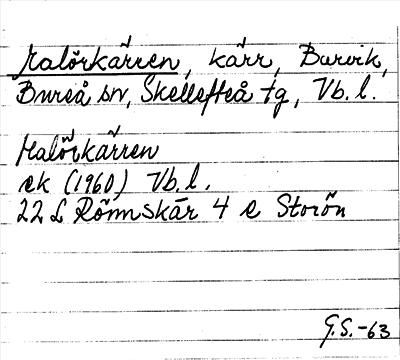 Malörkärren, kärr, Burvik,
Bureå sn, Skellefteå tg, Vb. l.
Malörkärren
ek (1960) Vb. l.
22 L Rönnskär 4 c Storön
G.S.-63